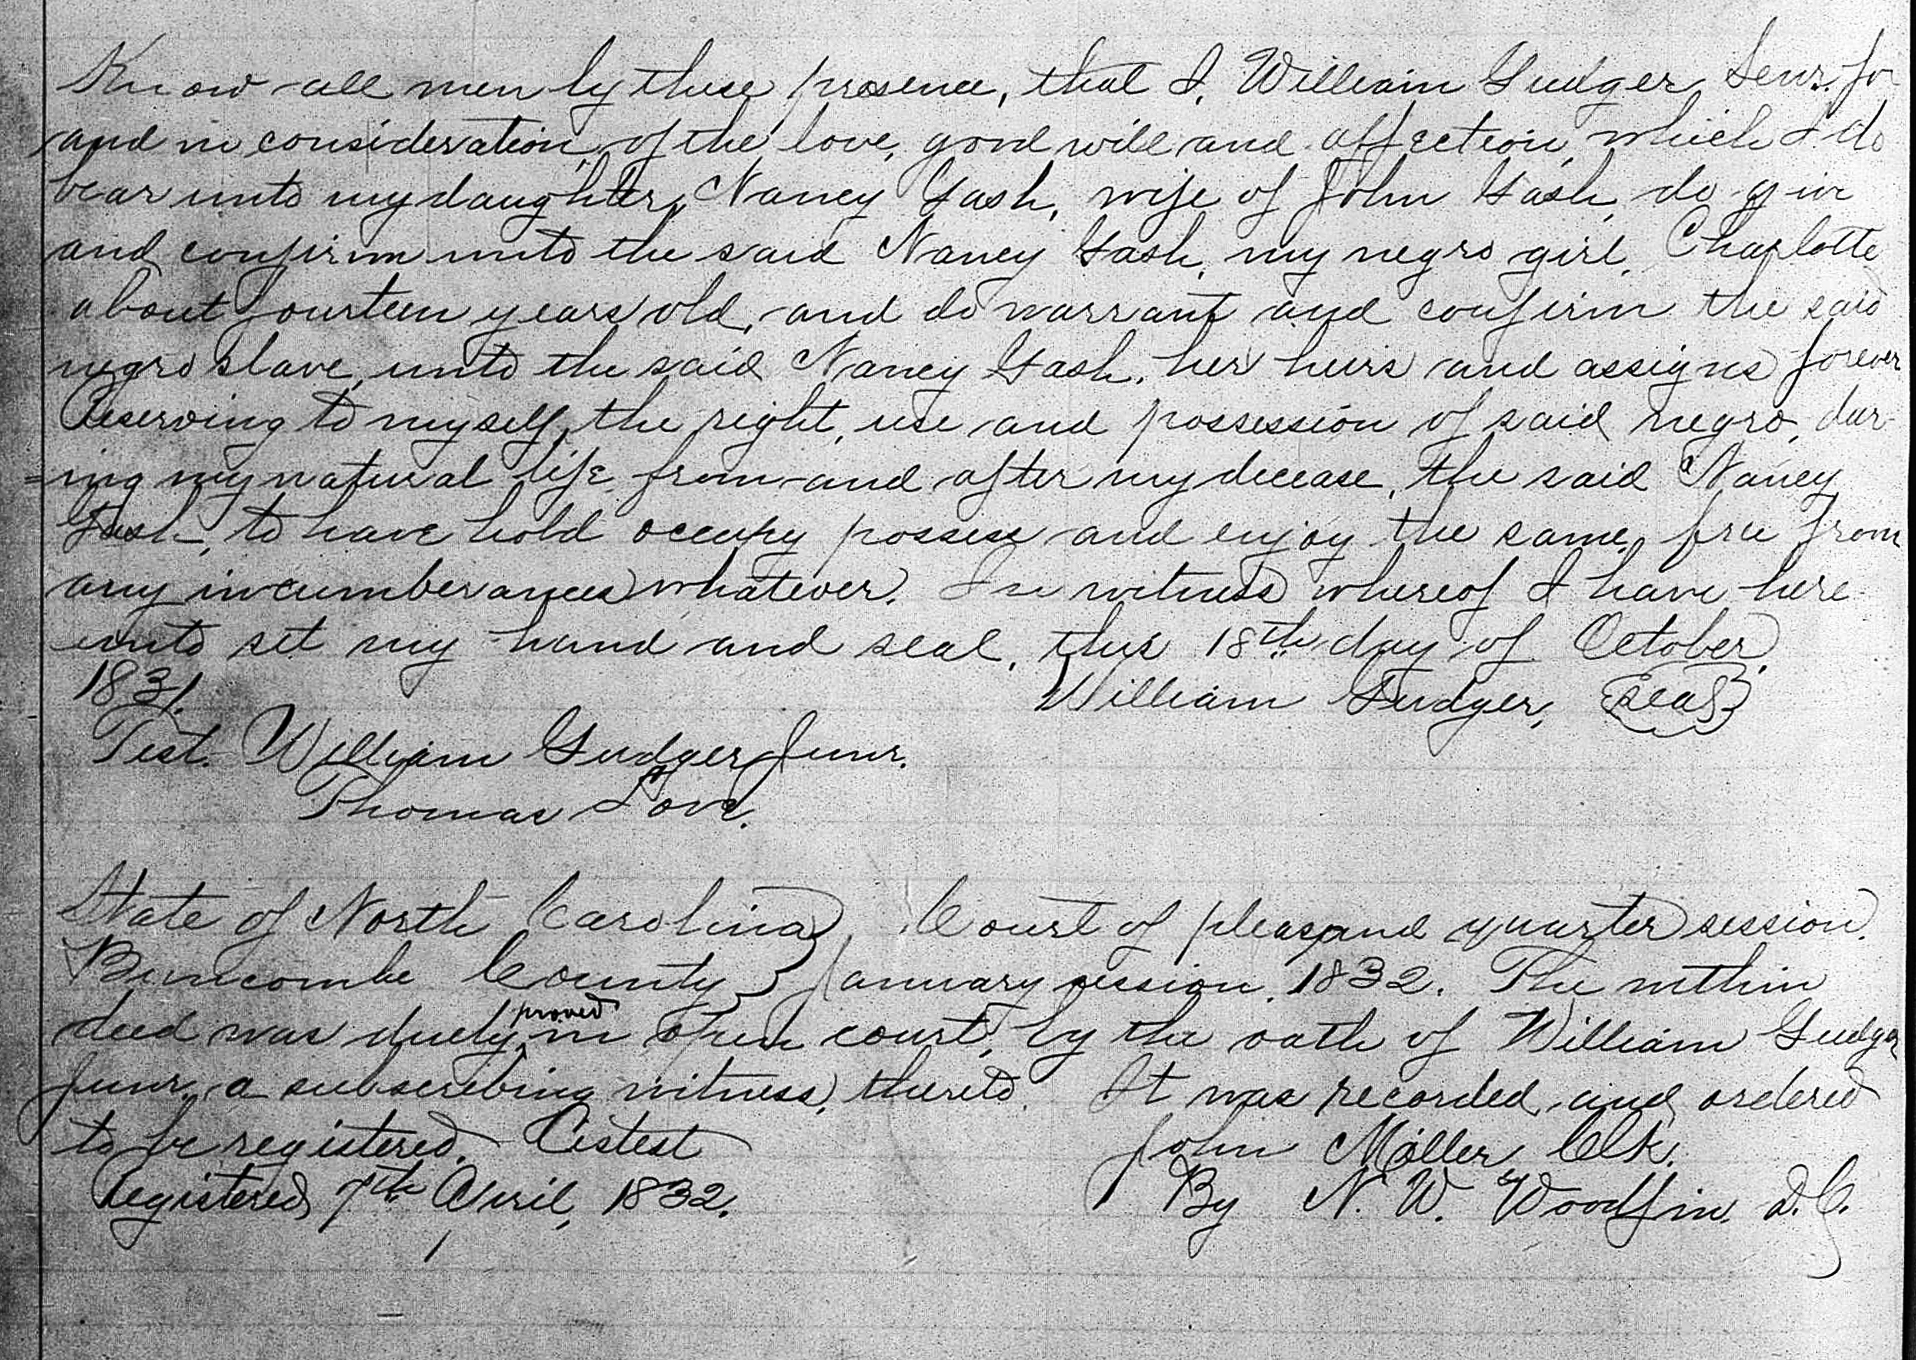 Know all men by these presence, that I, William Gudger, Senr. for
and in consideration, of the love, good will and affection, which I do
bear unto my daughter, Nancy Gash, wife of John Gash, do give
and confirm unto the said Nancy Gash, my negro girl, Charlotte
about fourteen years old, and do warrant and confirm the said
negro slave, unto the said Nancy Gash, her heirs and assigns forever
Reserving to myself, the right, use and possession of said negro, dur-
=ing my natural life, from and after my decease, the said Nancy
Gash, to have hold occupy possess and enjoy the same, free from
any incumberances whatever. In witness whereof I have here-
unto set my hand and seal, this 18th day of October,
1831. William Gudger, Seal
Test. William Gudger, Junr.
Thomas Love.
State of North Carolina } Court of pleas and quarter session.
Buncombe County } January session, 1832. The within
deed was duely proved in open court, by the oath of William Gudger
Junr. a subscribing witness, thereto. It was recorded and ordered
to be registered. Cestest John Miller Clk.
Registered 7th April, 1832. By N. W. Woodfin. D.C.